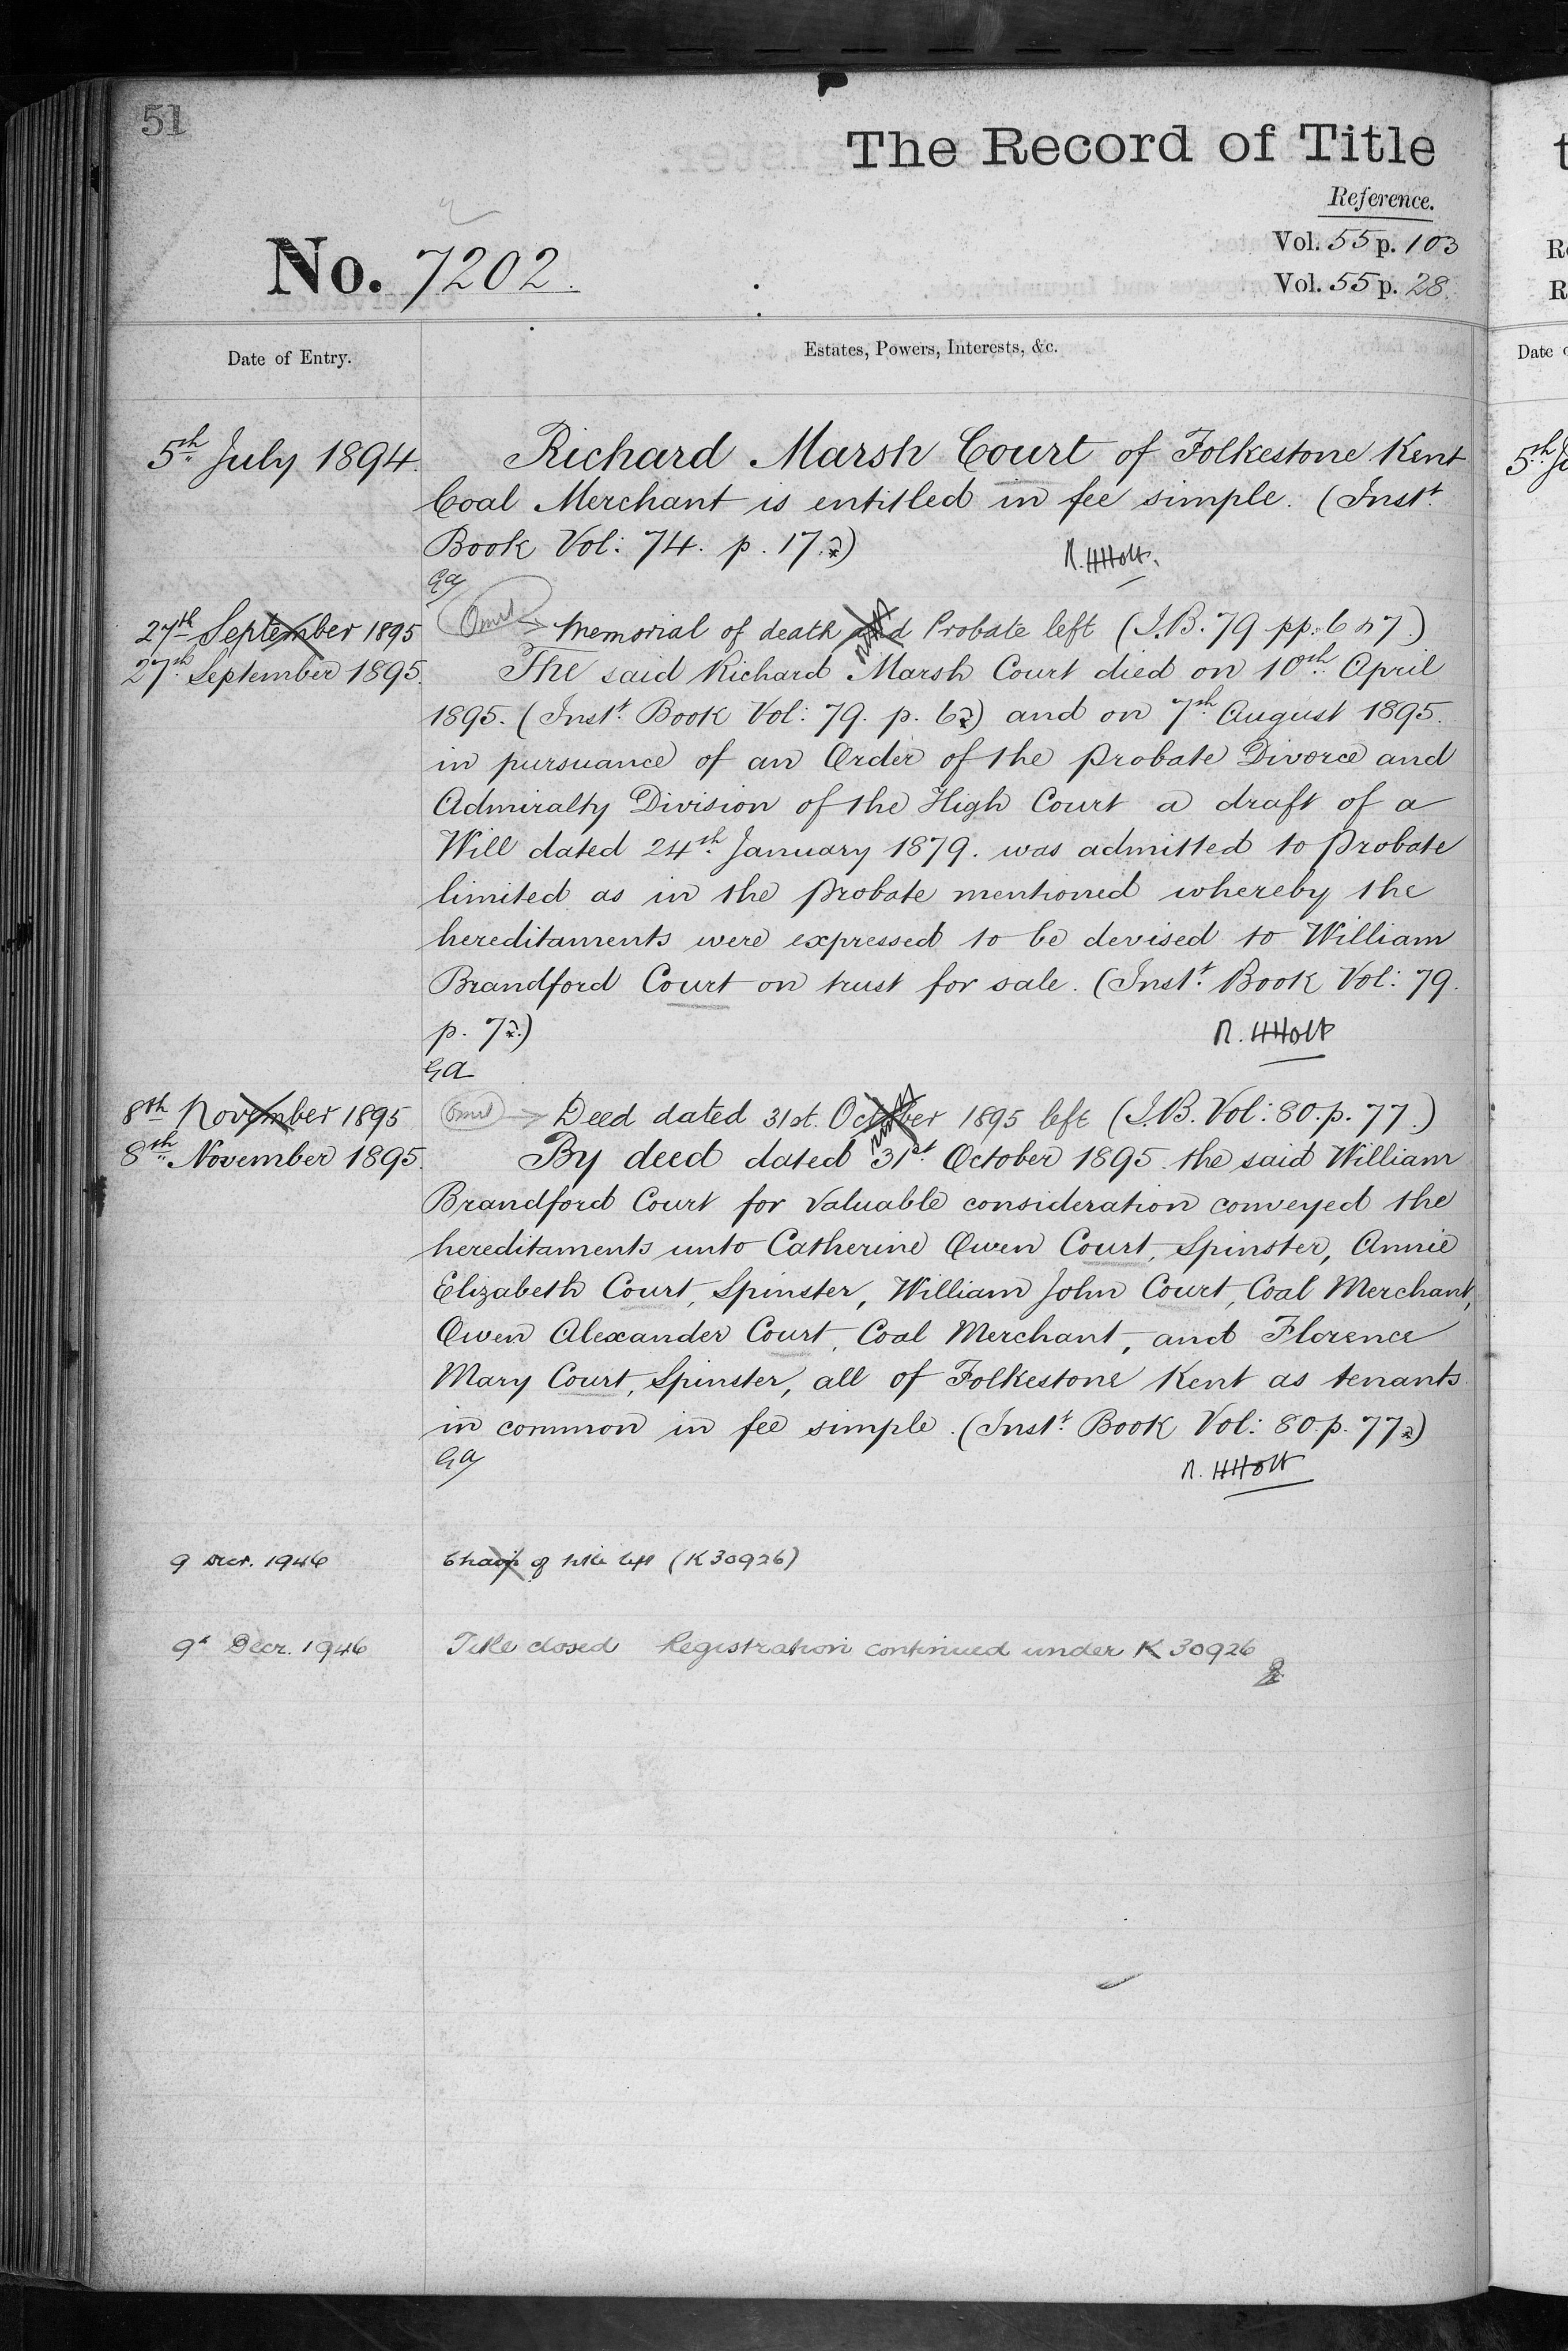 51
The Record of Title
Reference.
Vol. 55 p. 103
No. 7202.
Vol. 55 p. 28
Date of Entry.
Estates, Powers, Interests, &c.
5th July 1894.
Richard Marsh Court of Folkestone Kent
Coal Merchant is entitled in fee simple. (Inst.t
Book Vol: 74. p. 17.)
R. H Holt.
GA
27th September 1895
Omit
Memorial of death and Probate left (I.B. 79 pp. 6 & 7.)
27th September 1895.
The said Richard Marsh Court died on 10th April
1895. (Inst.t Book Vol: 79. p. 6) and on 7th August 1895.
in pursuance of an Order of the Probate Divorce and
Admiralty Division of the High Court a draft of a
Will dated 24th January 1879. was admitted to Probate
limited as in the Probate mentioned whereby the
hereditaments were expressed to be devised to William
Brandford Court on trust for sale. (Inst.t Book Vol: 79.
p. 7.)
R. H Holt
GA
8th November 1895
Omit
Deed dated 31st. October 1895 left (I.B. Vol: 80. p. 77.)
8th November 1895.
By deed dated 31st October 1895. the said William
Brandford Court for valuable consideration conveyed the
hereditaments unto Catherine Owen Court, Spinster, Annie
Elizabeth Court, Spinster, William John Court, Coal Merchant,
Owen Alexander Court, Coal Merchant, and Florence
Mary Court, Spinster, all of Folkestone Kent as tenants
in common in fee simple. (Inst.t Book Vol: 80. p. 77)
GA
R. H Holt
9 Decr. 1946
Chain of title left (K 30926)
9th Decr. 1946
Title closed Registration continued under K 30926
t
R
R
Date
5th J